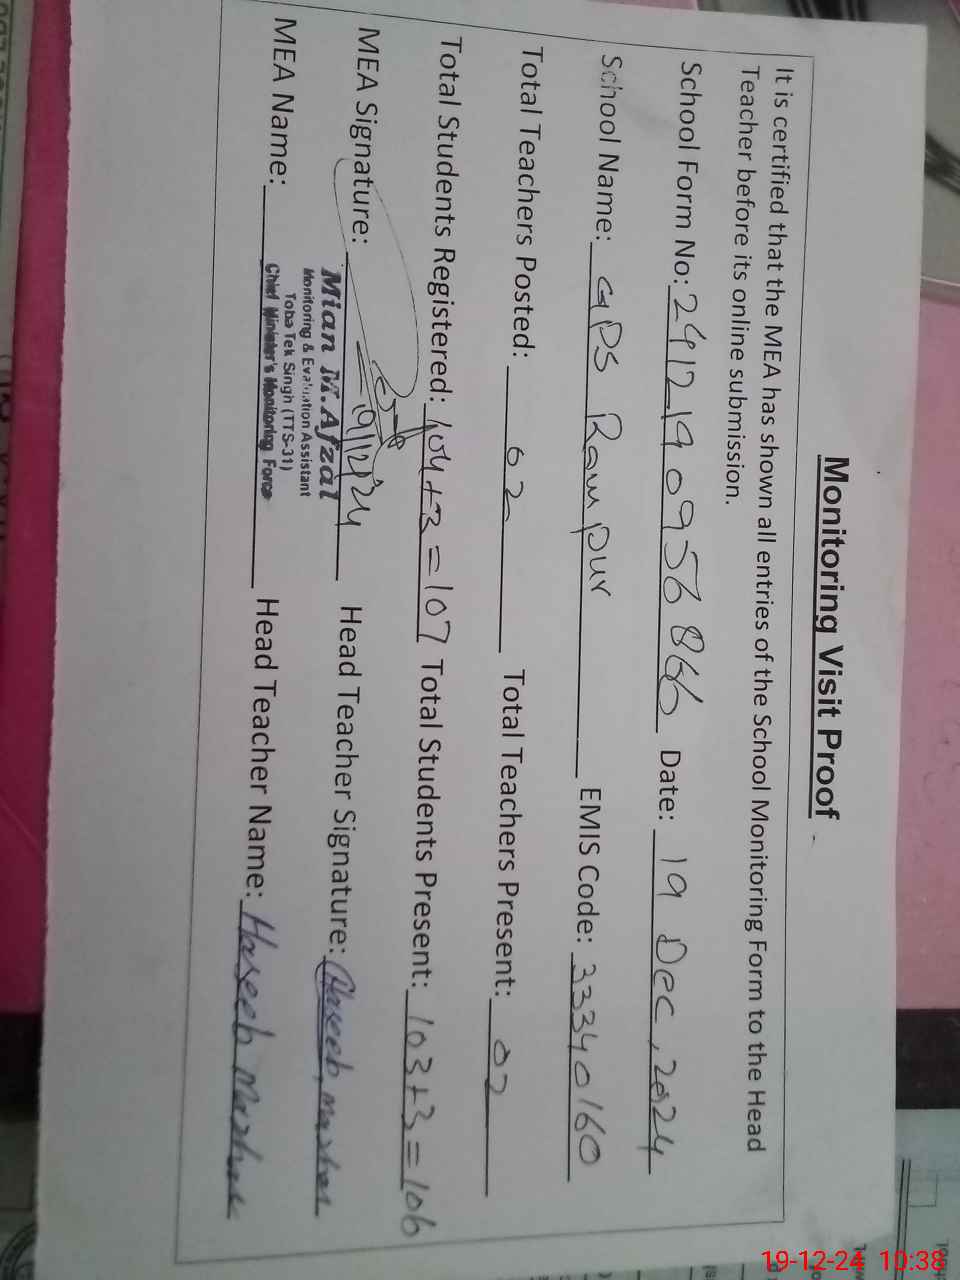 Monitoring Visit Proof
It is certified that the MEA has shown all entries of the School Monitoring Form to the Head
Teacher before its online submission.
School Form No: 241219 0956866 Date: 19 Dec, 2024
School Name: GPS Rampur EMIS Code: 33340160
Total Teachers Posted: 02 Total Teachers Present: 02
Total Students Registered: 104+3=107 Total Students Present: 103+3=106
MEA Signature: 19/12/24 Head Teacher Signature: Haseeb
Mian M. Afzal
Monitoring & Evaluation Assistant
Toba Tek Singh (TTS-31)
Chief Minister's Monitoring Force
MEA Name: Head Teacher Name: Haseeb
19-12-24 10:38